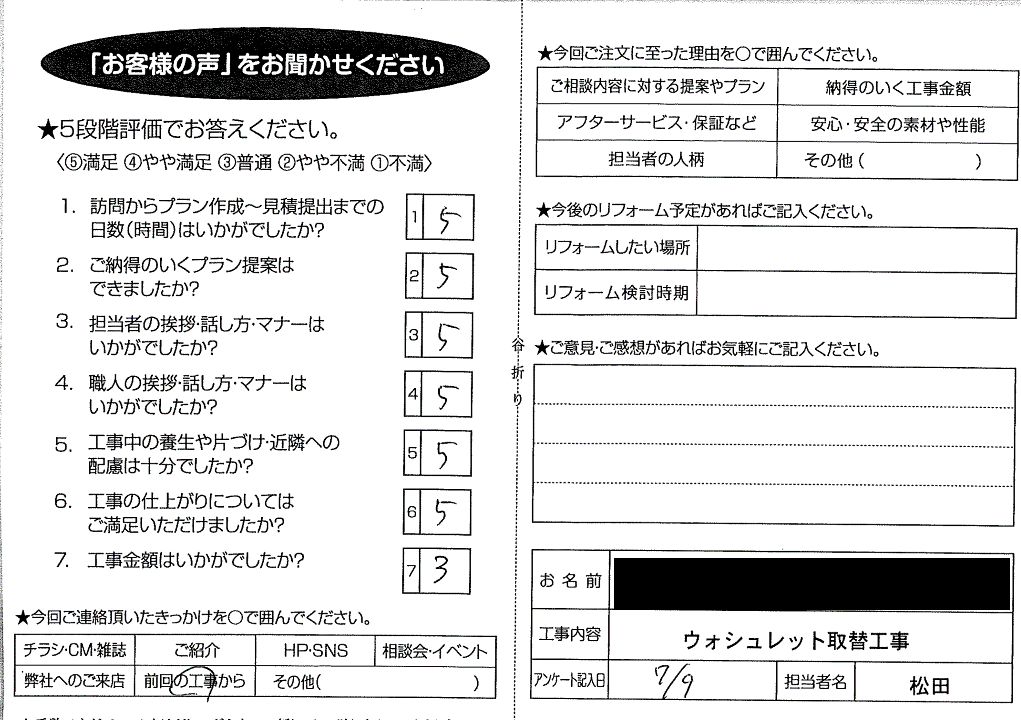 「お客様の声」をお聞かせください
★5段階評価でお答えください。
〈⑤満足 ④やや満足 ③普通 ②やや不満 ①不満〉
1. 訪問からプラン作成～見積提出までの
日数(時間)はいかがでしたか?
1 5
2. ご納得のいくプラン提案は
できましたか?
2 5
3. 担当者の挨拶・話し方・マナーは
いかがでしたか?
3 5
4. 職人の挨拶・話し方・マナーは
いかがでしたか?
4 5
5. 工事中の養生や片づけ・近隣への
配慮は十分でしたか?
5 5
6. 工事の仕上がりについては
ご満足いただけましたか?
6 5
7. 工事金額はいかがでしたか?
7 3
★今回ご連絡頂いたきっかけを○で囲んでください。
チラシ・CM・雑誌 ご紹介 HP・SNS 相談会・イベント
弊社へのご来店 前回の工事から その他( )
谷折り
★今回ご注文に至った理由を○で囲んでください。
ご相談内容に対する提案やプラン 納得のいく工事金額
アフターサービス・保証など 安心・安全の素材や性能
担当者の人柄 その他( )
★今後のリフォーム予定があればご記入ください。
リフォームしたい場所
リフォーム検討時期
★ご意見・ご感想があればお気軽にご記入ください。
お名前
工事内容 ウォシュレット取替工事
アンケート記入日 7/9 担当者名 松田